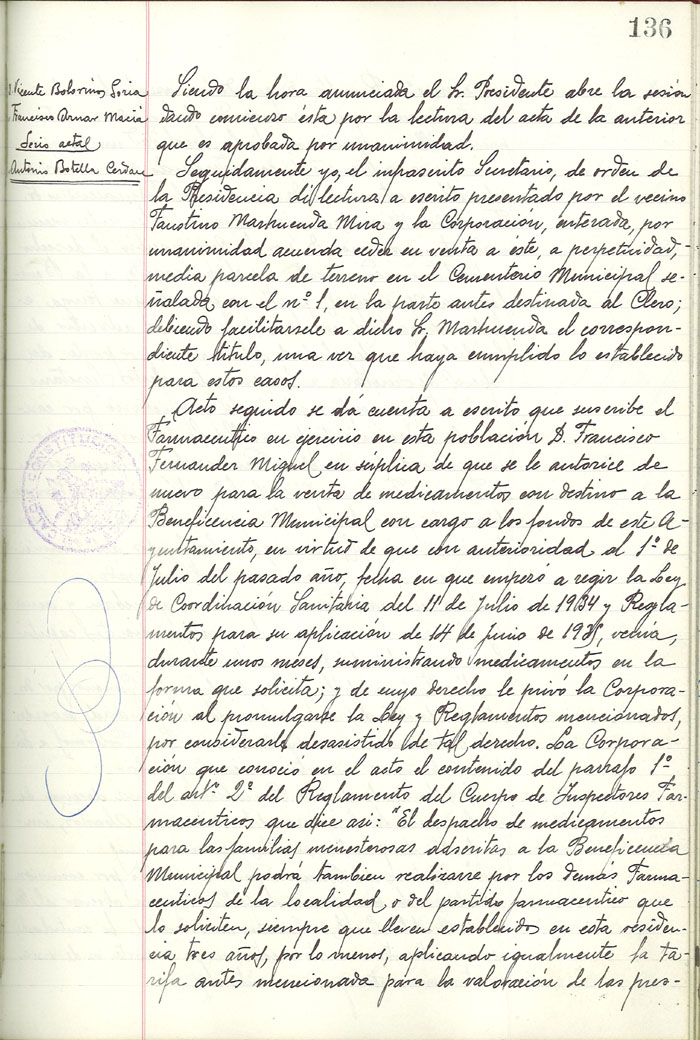 136
D. Vicente Bolorinos Soria
Francisco Arnar Mariá
Serio actal
Antonio Botella Cerdan
Siendo la hora anunciada el Sr. Presidente abre la sesión
dando comienzo ésta por la lectura del acta de la anterior
que es aprobada por unanimidad.
Seguidamente yo, el infrascrito Secretario, de orden de
la Presidencia di lectura a escrito presentado por el vecino
Faustino Marhuenda Mira y la Corporación, enterada, por
unanimidad acuerda ceder en venta a éste, a perpetuidad,
media parcela de terreno en el Cementerio Municipal se-
ñalada con el nº 1, en la parte antes destinada al Clero;
debiendo facilitarsele a dicho Sr. Marhuenda el correspon-
diente titulo, una vez que haya cumplido lo establecido
para estos casos.
Acto seguido se dá cuenta a escrito que suscribe el
Farmaceutico en ejercicio en esta población D. Francisco
Fernandez Miguel en súplica de que se le autorice de
nuevo para la venta de medicamentos con destino a la
Beneficencia Municipal con cargo a los fondos de este A-
yuntamiento, en virtud de que con anterioridad al 1º de
Julio del pasado año, fecha en que empezó a regir la Ley
de Coordinación Sanitaria del 11 de Julio de 1934 y Regla-
mentos para su aplicación de 14 de Junio de 1935, venia,
durante unos meses, suministrando medicamentos en la
forma que solicita; y de cuyo derecho le privó la Corpora-
ción al promulgarse la Ley y Reglamentos mencionados,
por considerarle desasistido de tal derecho. La Corpora-
ción que conoció en el acto el contenido del parrafo 1º
del artº 2º del Reglamento del Cuerpo de Inspectores Far-
maceuticos que dice asi: "El despacho de medicamentos
para las familias menesterosas adscritas a la Beneficencia
Municipal podrá tambien realizarse por los demás Farma-
ceuticos de la localidad o del partido farmaceutico que
lo soliciten, siempre que lleven establecidos en esta residen-
cia tres años, por lo menos, aplicando igualmente la ta-
rifa antes mencionada para la valoración de las pres-